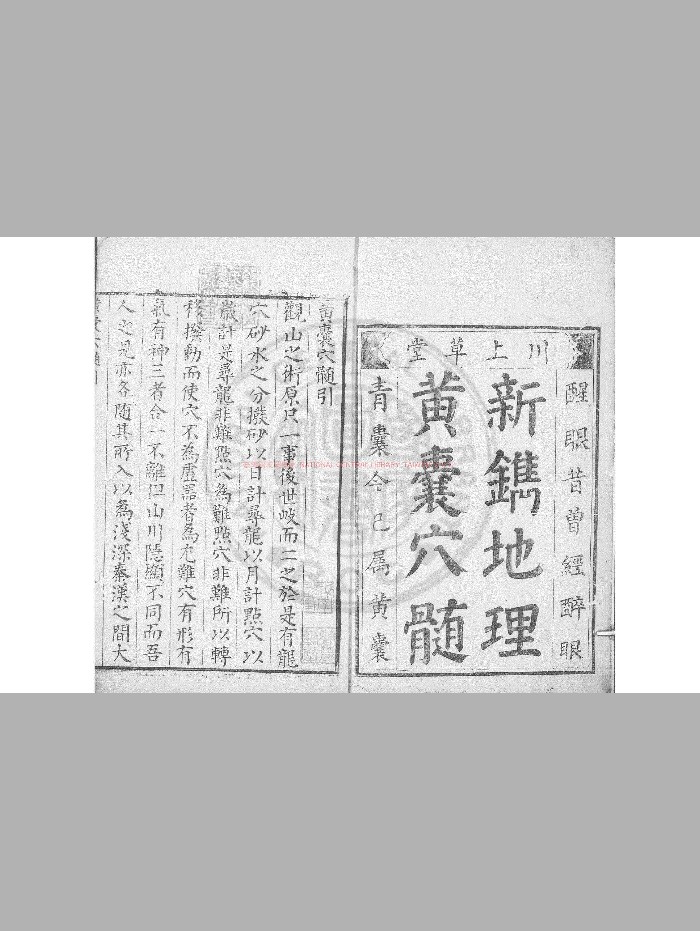 川上草堂
醒眼昔曾經醉眼
新鐫地理
黃囊穴髓
青囊今已属黃囊
黃囊穴髓引
觀山之術原只一事後世岐而二之於是有龍
穴砂水之分撥砂以日計尋龍以月計點穴以
歲計是尋龍非難點穴為難點穴非難所以轉
移撥動而使穴不為虛器者為尤難穴有形有
氣有神三者合一不離但山川隱顯不同而吾
人之見亦各随其所入以為淺深秦漢之間大
NATIONAL CENTRAL LIBRARY